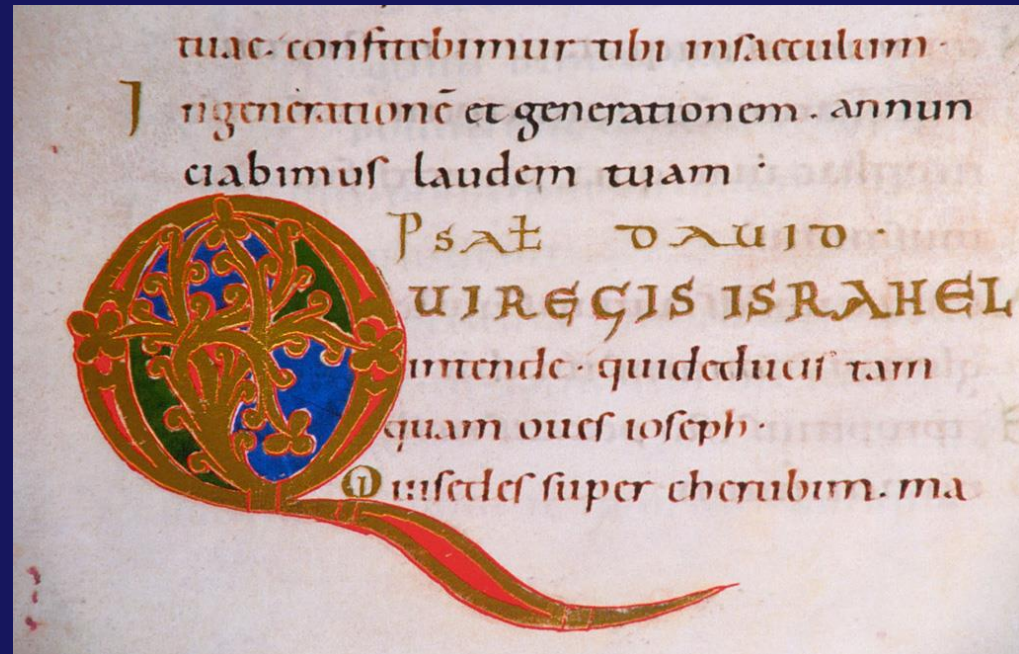 tuae. confitebimur tibi insaeculum.
Ingenerationē et generationem. annun
ciabimus laudem tuam.
Psał DAUID.
QUIREGIS ISRAHEL
intende. quideducis tam
quam oues ioseph.
Quisedes super cherubim. ma